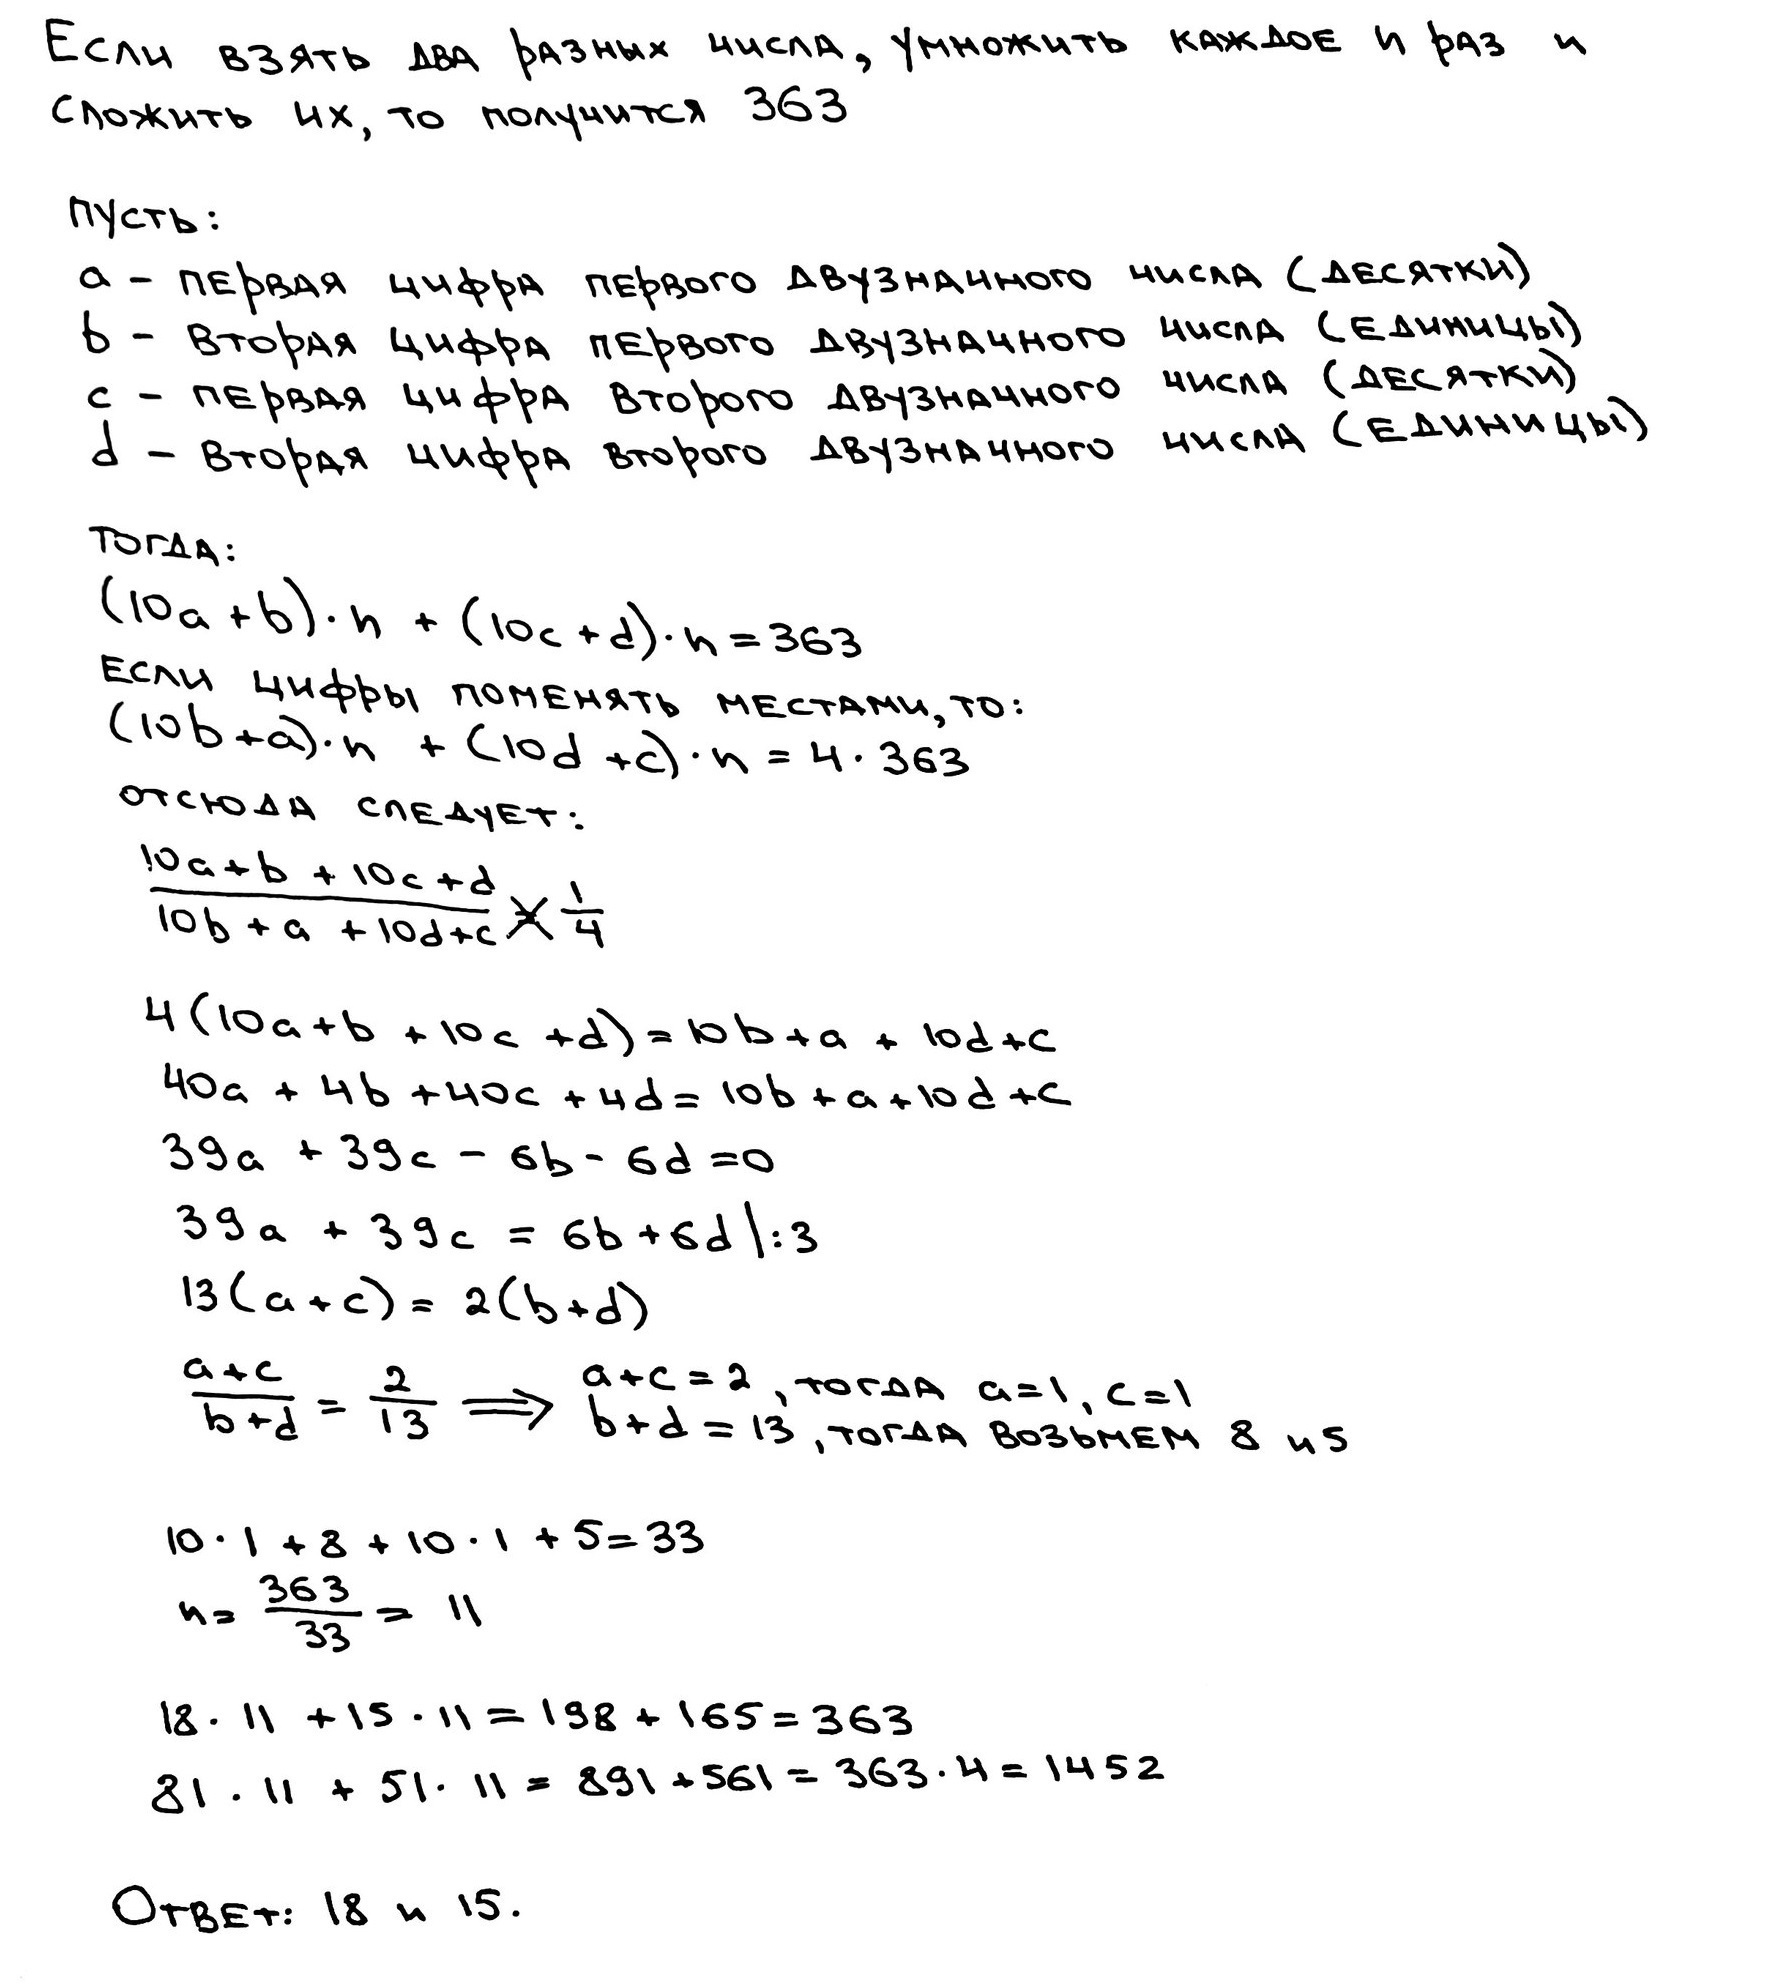 Если взять два разных числа, умножить каждое n раз и
сложить их, то получится 363
Пусть:
a – первая цифра первого двузначного числа (десятки)
b – вторая цифра первого двузначного числа (единицы)
c – первая цифра второго двузначного числа (десятки)
d – вторая цифра второго двузначного числа (единицы)
Тогда:
(10a + b) · n + (10c + d) · n = 363
Если цифры поменять местами, то:
(10b + a) · n + (10d + c) · n = 4 · 363
Отсюда следует:
10a + b + 10c + d
10b + a + 10d + c
1
4
4(10a + b + 10c + d) = 10b + a + 10d + c
40a + 4b + 40c + 4d = 10b + a + 10d + c
39a + 39c – 6b – 6d = 0
39a + 39c = 6b + 6d |:3
13(a + c) = 2(b + d)
a + c / b + d = 2 / 13 ⟹ a + c = 2, тогда a = 1, c = 1
b + d = 13, тогда возьмем 8 и 5
10 · 1 + 8 + 10 · 1 + 5 = 33
n = 363 / 33 = 11
18 · 11 + 15 · 11 = 198 + 165 = 363
81 · 11 + 51 · 11 = 891 + 561 = 363 · 4 = 1452
Ответ: 18 и 15.